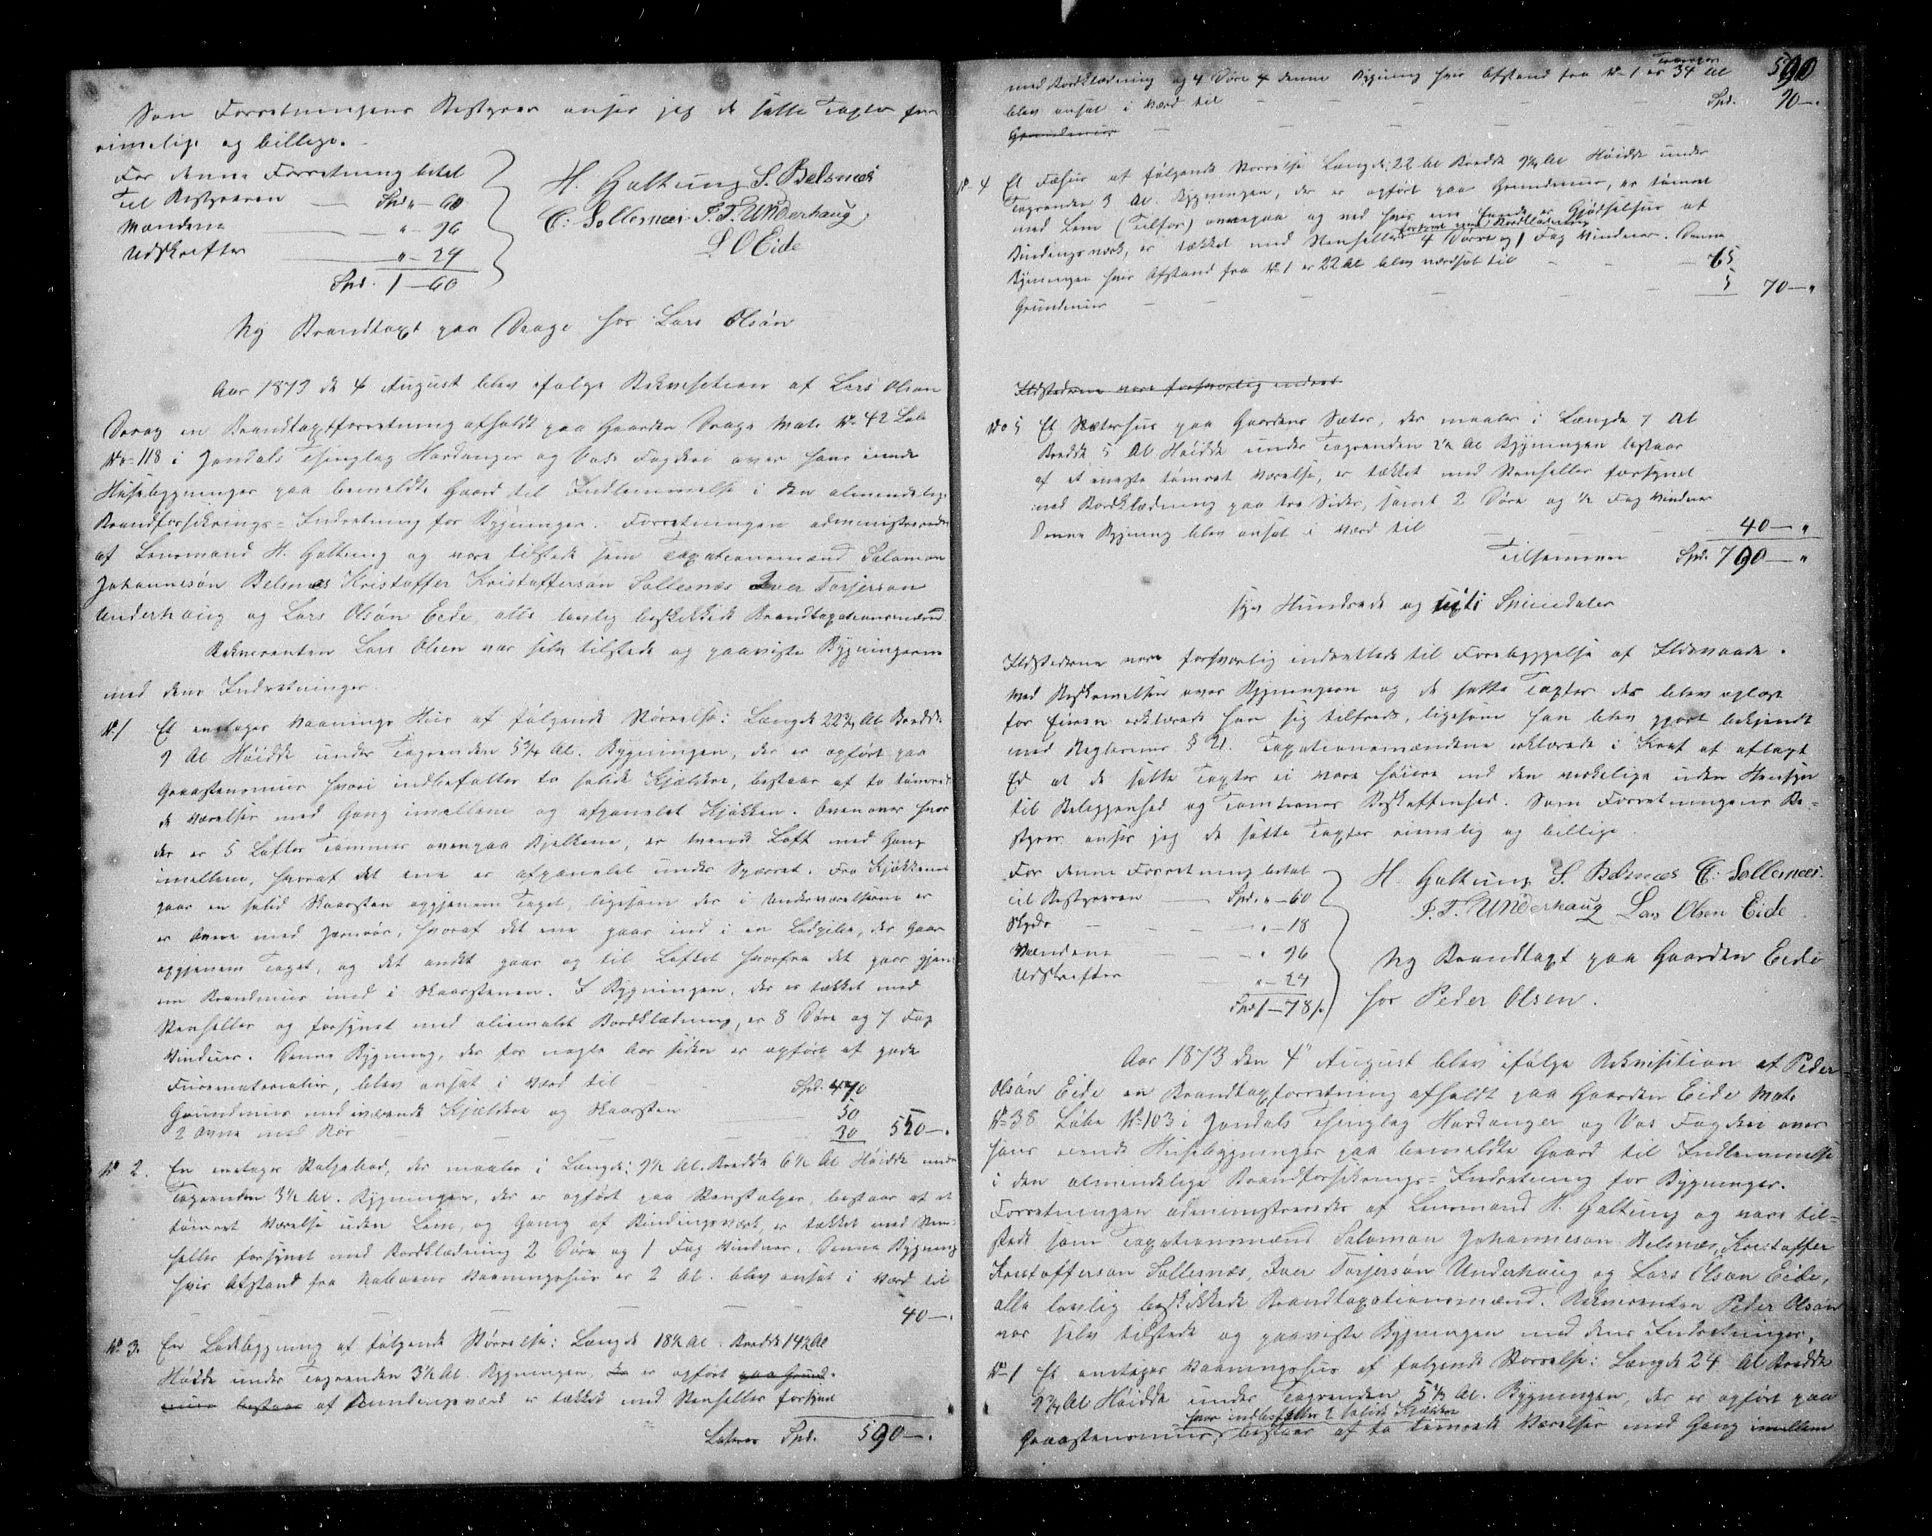 Som Forretningens Bestyrer anser jeg de satte Taxter for
rimelige og billige. –
For denne Forretning betal
Til Bestyreren — Spd. " – 60
Mændene — " – 96
Udskrifter — " – 24
Spd. 1 – 60
H. Galtung S. Belsnæs
C. Sollesnæs I. T. Underhaug
L O Eide
Ny Brandtaxt paa Drage hos Lars Olsøn
Aar 1873 de 4 August blev ifølge Rekvisition af Lars Olson
Drag en Brandtaxtforretning afholdt paa Gaarden Drage Mat. No 42 Løb
No 118 i Jondals Thinglag Hardanger og Vos Fogderi over hans iende
Husebygninger paa bemeldte Gaard til Indlemmelse i den almindelige
Brandforsikrings-Indretning for Bygninger. Forretningen administreredes
af Lensmand H. Galtung og vare tilstede som Taxationsmænd Salamon
Johannesøn Belsnæs Kristoffer Kristofferson Sollesnæs Iver Torjerson
Underhaug og Lars Olsøn Eide, alle lovlig beskikkede Brandtaxationsmænd
Rekvirenten Lars Olsen var selv tilstede og paaviste Bygningerne
med dens Indretninger.
No 1 Et enetages Vaanings Hus af følgende Størrelse: Længde 22¾ Al Bredde
9 Al Høidde under Tagrenden 5¾ Al. Bygningen, der er opført paa
Graastensmur hvori indbefatter to solide Kjældre, bestaar af to tømre-
de Værelser med Gang imellem og afpanelet Kjøkken. Ovenover hvor
der er 5 Løfter Tømmer ovenpaa Bjelkene, er tvende Loft med Gang
imellem, hvoraf det ene er afpanelet under Sperret. Fra Kjøkkenet
gaar en solid Skorsten opgjenem Taget, ligesom der i Underværelserne er
er Ovne med Jernrør, hvoraf det ene gaar ind i en Ladpibe, der gaar
opgjenem Taget, og det andet gaar og til Loftet hvorfra det gaar gjen-
em Brandmur ind i Skaarstenen. I Bygningen, der er tækket med
Stenheller og forsynet med oliemalet Bordklædning, er 8 Døre og 7 Fag
Vinduer. Denne Bygning, der for nogle Aar siden er opført af gode
Furumaterialier, blev anset i Værd til — Spd. 470
Grundmur med iværende Kjældre og Skaarsten — 50
2 Ovne med Rør — 30 550 – "
No 2. En enetages Stolpebod, der maaler i Længde: 9½ Al. Bredde 6½ Al Høidde under
Tagrenden 3½ Al. Bygningen, der er opført paa Stenstolper, bestaar af et
tømret Værelse uden Lem, og Gang af Bindingsværk, er tækket med Sten-
heller forsynet med Bordklædning 2 Døre og 1 Fag Vinduer. Denne Bygning
hvis Afstand fra Naboens Vaaningshus er 2 Al. blev anset i Værd til
— 40 – "
No 3. En Ladebygning af følgende Størrelse: Længde 18½ Al. Bredde 14½ Al
Høide under Tagrenden 3½ Al. Bygningen, er opført paa Grund-
mur bestaar af Bindingsværk er tækket med Stenheller forsynet
Lateres Spd. 590 – "
590
med Bordklædning og 4 Døre denne Bygning hvis Afstand fra No 1 er 34 Al
blev anset i Værd til — Spd. 90 – "
Grundmur —
No 4 Et Fæhus af følgende Størrelse Længde: 22 Al Bredde 9¾ Al Høidde under
Tagrenden 3 Al. Bygningen, der er opført paa Grundmur, er tømret
med Lem (Tilfor) ovenpaa og ved hvis ene Ende er Gjødselhus af
forsynet med Bordklædning
Bindingsværk, er tækket med Stenheller 4 Døre og 1 Fag Vinduer. Denne
Bygningen hvis Afstand fra No 1 er 22 Al blev værdsat til — 65
Grundmur — 5 70 – "
Ildstederne vare forsvarlig indret
No 5 Et Sæterhus paa Gaardens Sæter, der maaler i Længde 7 Al
Bredde 5 Al Høidde under Tagrenden 2½ Al Bygningen bestaar
af et eneste tømret Værelse, er tækket med Stenheller forsynet
med Bordklædning paa tre Sider, samt 2 Døre og ½ Fag Vinduer
Denne Bygning blev anset i Værd til — 40 – "
Tilsammen Spd. 790 – "
syv Hundrede og niti Speciedaler
Ildstederne vare forsvarlig indrettede til Forebyggelse af Ildsvaade.
Med Beskrivelsen over Bygningen og de satte Taxter der blev oplæst
for Eieren erklærede han sig tilfreds, ligesom han blev gjort bekjendt
med Reglernes § 21. Taxationsmændene erklærede i Kraft af aflagt
Ed at de satte Taxter ei vare høiere end den virkelige uden Hensyn
til Beliggenhed og Tomternes Beskaffenhed. Som Forretningens Be-
styrer anser jeg de satte Taxter rimelig og billige.
For denne Forretning betal
Til Bestyreren — Spd. " – 60
Skyds — " – 18
Mændene — " 96
Udskrifter — " – 24
Spd 1 – 78
H. Galtung S. Belsnæs C. Sollesnæs.
I. T. Underhaug Lars Olsen Eide
Ny Brandtaxt paa Gaarden Eide
hos Peder Olsen.
Aar 1873 den 4de August blev ifølge Rekvisition af Peder
Olsøn Eide en Brandtaxforretning afholdt paa Gaarden Eide Mat.
No 38 Løbe No 103 i Jondals Thinglag Hardanger og Vos Fogderi over
hans iende Husebygninger paa bemeldte Gaard til Indlemmelse
i den almindelige Brandforsikrings-Indretning for Bygninger.
Forretningen administreredes af Lensmand H. Galtung og vare til-
stede som Taxationsmænd Salomon Johannesøn Belsnæs, Kristoffer
Kristofferson Sollesnæs, Iver Torjersøn Underhaug og Lars Olson Eide,
alle lovlig beskikkede Brandtaxationsmænd. Rekvirenten Peder Olsøn
var selv tilstede og paaviste Bygningen med dens Indretninger.
No 1 Et enetages Vaaningshus af følgende Størrelse: Længde 24 Al Bredde
9¾ Al Høidde under Tagrenden 5½ Al. Bygningen, der er opført paa
hvor indbefatter 2 solide Kjældre
Graastensmur, bestaar af to tømrede Værelser med Gang imellem